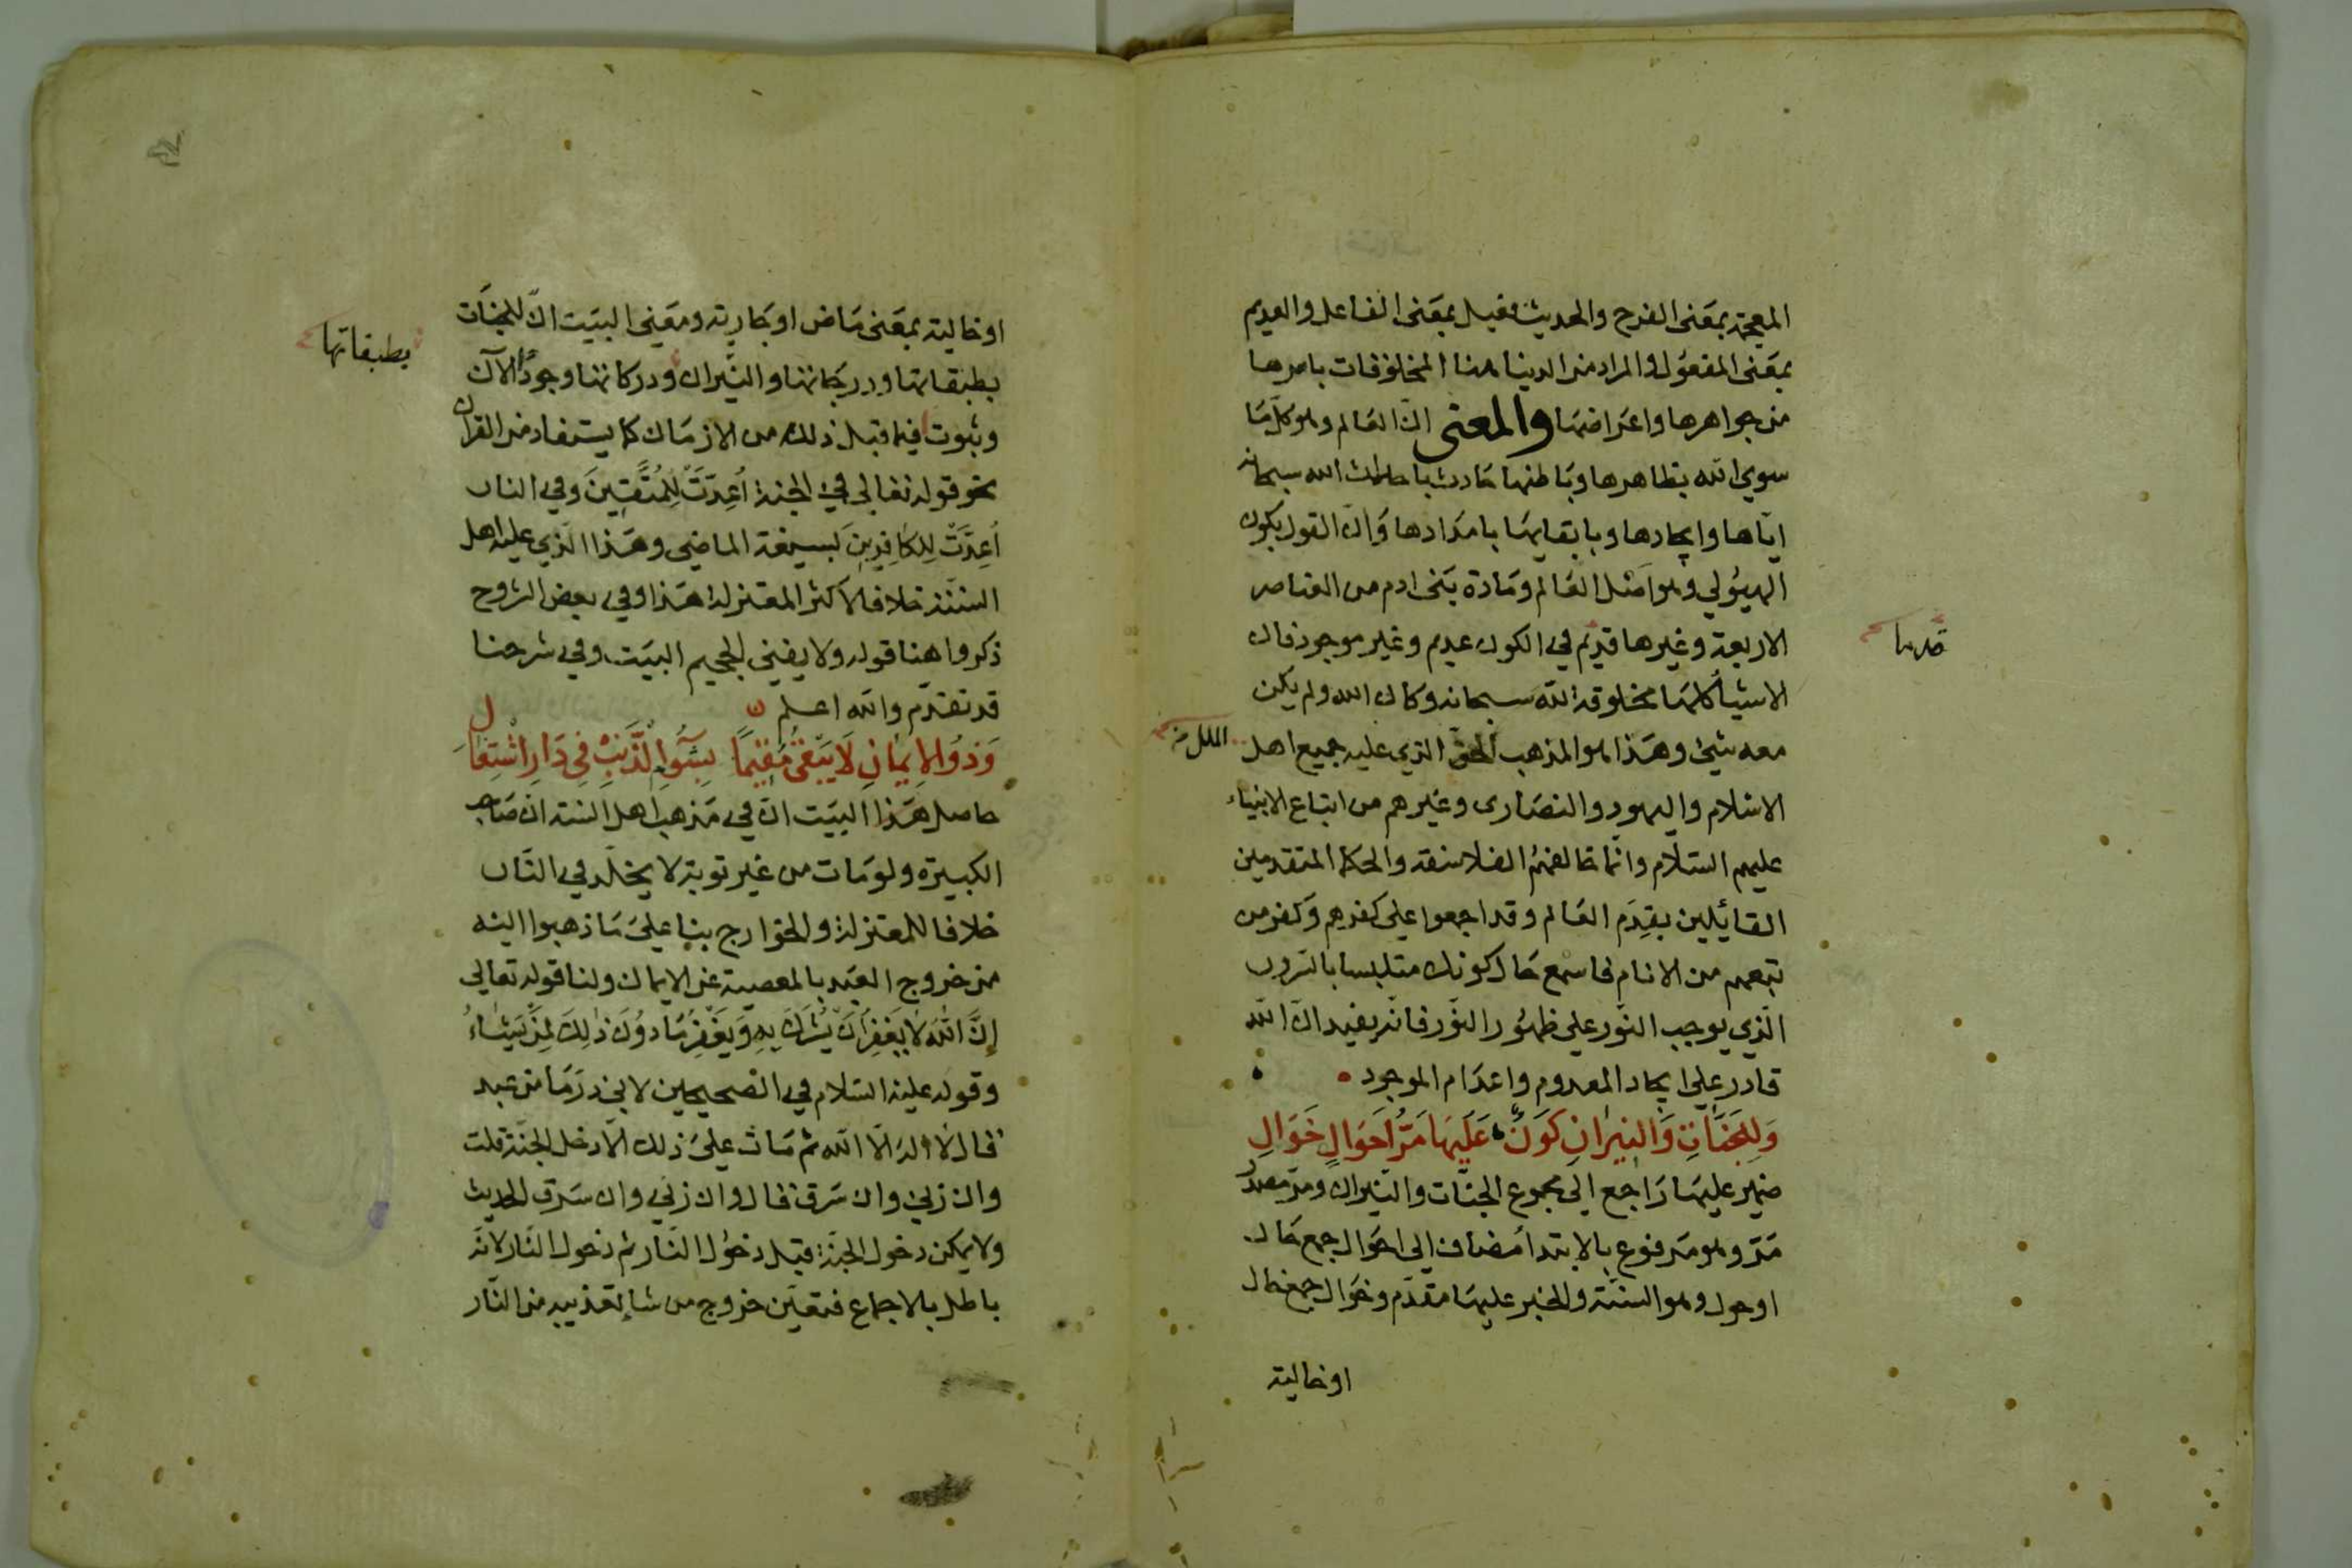 المعجمة بمعنى الفرح والحديث فعيل بمعنى الفاعل والعديم
بمعنى المفعول والمراد من الدنيا هنا المخلوقات باسرها
من جواهرها واعراضها والمعنى ان العالم وهو كل ما
سوى الله بظاهرها وباطنها حادث باحداث الله سبحانه
اياها وايجادها وبابقايها بامدادها وان القول بكون
الهيولي وهو اصل العالم ومادة بنى ادم من العناصر
الاربعة وغيرها قديم في الكون عديم وغير موجود فان
قدمها
الاشيأ كلها مخلوقة الله سبحانه وكان الله ولم يكن
معه شيئ وهذا هو المذهب الحق الذي عليه جميع اهل
الملل من
الاسلام واليهود والنصارى وغيرهم من اتباع الانبياء
عليهم السلام وانما خالفهم الفلاسفة والحكما المتقدمين
القايلين بقدم العالم وقد اجمعوا على كفرهم وكفر من
تبعهم من الانام فاسمع حال كونك متلبسا بالسرور
الذي يوجب النور على ظهور النور فانه يفيد ان الله
قادر على ايجاد المعدوم واعدام الموجود
وَلِلْجَنَّاتِ وَالنِيرَانِ كَوْنٌ عَلَيْهَا مَرُّ اَحْوَالٍ خَوَالِ
ضمير عليها راجع الى مجموع الجنات والنيران ومر مصدر
مر وهو مرفوع بالابتدا مضاف الى احوال جمع حال
او حول وهو السنة والخبر عليها مقدم وخوال جمع خال
او خالية
او خالية بمعنى ماض او جارية ومعنى البيت ان للجنات
بطبقاتها ودرجاتها والنيران ودركاتها وجودُ الآن
بطبقاتها
وثبوت فيما قبل ذلك من الازمان كما يستفاد من القران
نحو قوله تعالى في الجنة اُعِدَّتْ لِلْمُتَّقِينَ وفي النار
اُعِدَّتْ لِلكَافِرِينَ بصيغة الماضي وهذا الذي عليه اهل
السنة خلافا لاكثر المعتزلة هذا وفي بعض الشروح
ذكروا هنا قوله ولا يفني الجحيم البيت وفي شرحنا
قد تقدم والله اعلم
وَذُوالاِيمَانِ لَا يَبْقَى مُقِيمًا بِسُوءِ الذَّنْبِ فِي دَارِ اشْتِعَال
حاصل هذا البيت ان في مذهب اهل السنة ان صاحب
الكبيرة ولو مات من غير توبة لا يخلد في النار
خلافا للمعتزلة والخوارج بنا على ما ذهبوا اليه
من خروج العبد بالمعصية عن الايمان ولنا قوله تعالى
اِنَّ اللهَ لَا يَغْفِرُ اَنْ يُشْرَكَ بِهِ وَيَغْفِرُ مَا دُونَ ذٰلِكَ لِمَنْ يَشَاءُ
وقوله عليه السلام في الصحيحين لابي ذر ما من عبد
قال لا اله الا الله ثم مات على ذلك الا دخل الجنة قلت
وان زني وان سرق قال وان زني وان سرق الحديث
ولا يمكن دخول الجنة قبل دخول النار ثم دخول النار لانه
باطل بالاجماع فتعين خروج من شا تعذيبه من النار